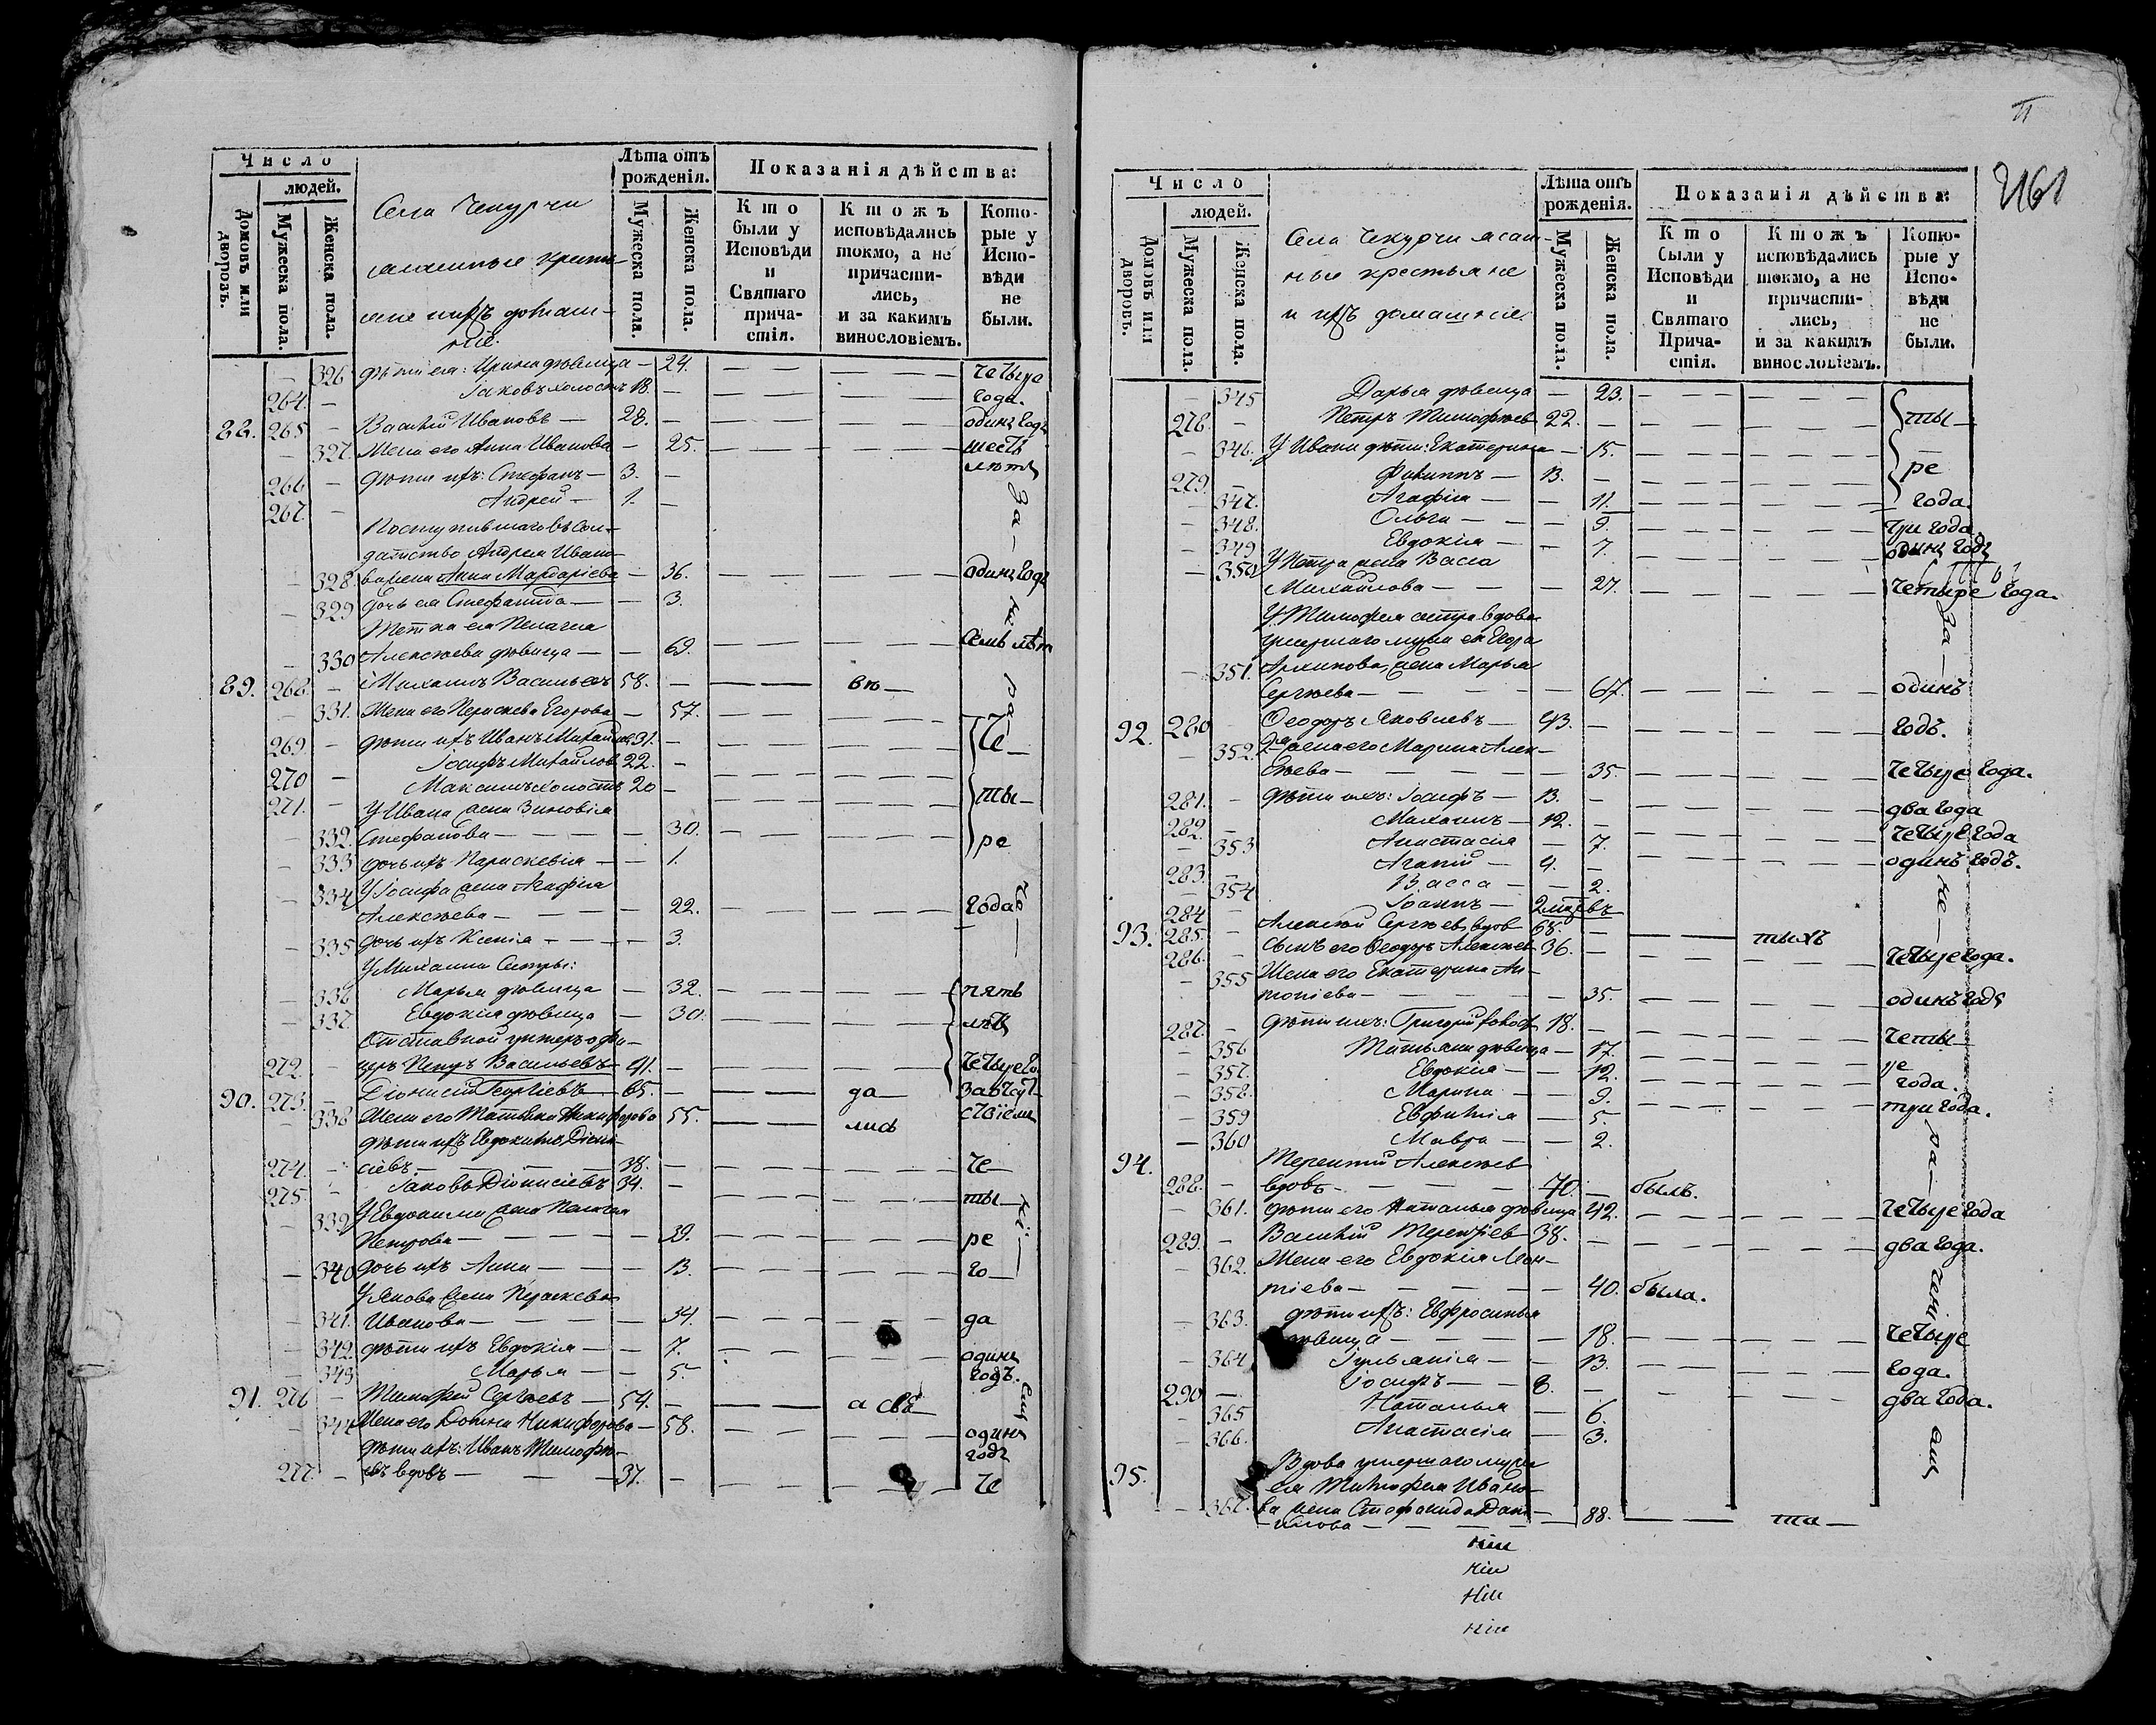 Число
людей.
Домовъ или дворовъ.
Мужеска пола.
Женска пола.
Села Чекурчи
ясашные кресть-
яне и ихъ домаш-
ніе.
Лѣта отъ рожденія.
Мужеска пола.
Женска пола.
Показанія дѣйства:
Кто были у Исповѣди и Святаго причастія.
Ктожъ исповѣдались токмо, а не причастились, и за какимъ винословіемъ.
Которые у Исповѣди не были.
326 дѣти ея: Ирина дѣвица — 24. четыре
264. Іаковъ холостъ 18. года.
88. 265 Василій Ивановъ — 28. одинъ годъ
327. Жена его Анна Иванова — 25. шесть
266 дѣти ихъ: Стефанъ — 3. лѣтъ
267. Андрей — 1.
Поступившаго въ сол-
датство Андрея Ивано-
328. ва жена Анна Мардаріева — 36. одинъ годъ
329 дочь ея Стефанида — 3.
Тетка ея Пелагея
330 Алексѣева дѣвица — 69. семь лѣтъ
89. 268 Михаилъ Васильевъ 58. — вѣ —
331. Жена его Параскева Егорова — 57.
269. дѣти ихъ Иванъ Михайловъ 31. Че —
270 Іосифъ Михайловъ 22.
271. Максимъ холостъ 20 ты —
У Ивана жена Зиновія
332. Стефанова — 30. ре
333 дочь ихъ Параскевія — 1.
334 У Іосифа жена Агафія
Алексѣева — 22. года
335 дочь ихъ Ксенія — 3.
У Михаила Сестры:
336 Марья дѣвица — 32. пять
337. Евдокія дѣвица — 30. лѣтъ
Отставной унтеръ офи-
272. церъ Петръ Васильевъ 41. четыре го.
90. 273. Діонисій Георгіевъ — 65. — да — За отсут-
338 Жена его Татьяна Никифорова 55. — лись ствіемъ
дѣти ихъ Евдокимъ Діони-
274. сіевъ — 38. Че
275. Іаковъ Діонисіевъ 34. ты
339 У Евдокима жена Пелагея
Петрова — 39. ре
340 дочь ихъ Анна — 13. го —
У Якова жена Параскева
341. Иванова — 34. да
342. дѣти ихъ Евдокія — 7. одинъ
343 Марья — 5. годъ.
91. 276 Тимофей Сергѣевъ — 54. — а свѣ
344 Жена его Домна Никифорова — 58. одинъ
дѣти ихъ: Иванъ Тимофѣ- годъ
277. евъ вдовъ — 37. Че
За — не — ра —
Число
людей.
Домовъ или дворовъ.
Мужеска пола.
Женска пола.
Села Чекурчи ясаш-
ные крестьяне
и ихъ домашніе.
Лѣта отъ рожденія.
Мужеска пола.
Женска пола.
Показанія дѣйства:
Кто были у Исповѣди и Святаго Причастія.
Ктожъ исповѣдались токмо, а не причастились, и за какимъ винословіемъ.
Которые у Исповѣди не были.
345 Дарья дѣвица — 23.
278. Петръ Тимофѣев 22. ты —
346. У Ивана дѣти: Екатерина — 15.
279. Филиппъ — 13. ре
347. Агафія — 11. года.
348. Ольга — 9. три года.
349 Евдокія — 7. одинъ годъ
350 У Петра жена Васса
Михайлова — 27. четыре года.
У Тимофея сестра вдова
умершаго мужа ея Егора
351. Архипова жена Марья
Сергѣева — 67. одинъ
92. 280 Ѳеодоръ Яковлевъ — 43. годъ.
352. 2я жена его Марина Алек-
сѣева — 35. четыре года.
281. дѣти ихъ: Іосифъ — 13. два года
282. Михаилъ — 12. четыре года
353 Анастасія — 7. одинъ годъ.
283. Агапій — 4.
354 Васса — 2.
284 Іоаннъ — 2 мцевъ
93. 285. Алексѣй Сергѣев вдов 68. — тыхъ
286. сынъ его Ѳеодоръ Алексѣев 36. четыре года.
355 Жена его Екатерина Ан-
тоніева — 35. одинъ годъ
287. дѣти ихъ: Григорій холост 18. четы
356 Татьяна дѣвица — 17. ре
357. Евдокія — 12. года.
358. Марина — 9. три года.
359 Евфимія — 5.
360 Мавра — 2.
94. Терентій Алексѣев
288. вдовъ — 70. былъ.
361. дѣти его Наталья дѣвица 42. четыре года
289. Василій Терентіев 38. два года.
362. Жена его Евдокія Леон-
тіева — 40. была.
363. дѣти ихъ: Евфросинья
дѣвица — 18. четыре
364 Іульянія — 13. года.
290 Іосифъ — 8. два года.
365 Наталья — 6.
366. Анастасія — 3.
95. Вдова умершаго мужа
ея Тимофея Ивано-
367. ва жена Стефанида Дани-
лова — 88. — та —
За — не — ра —